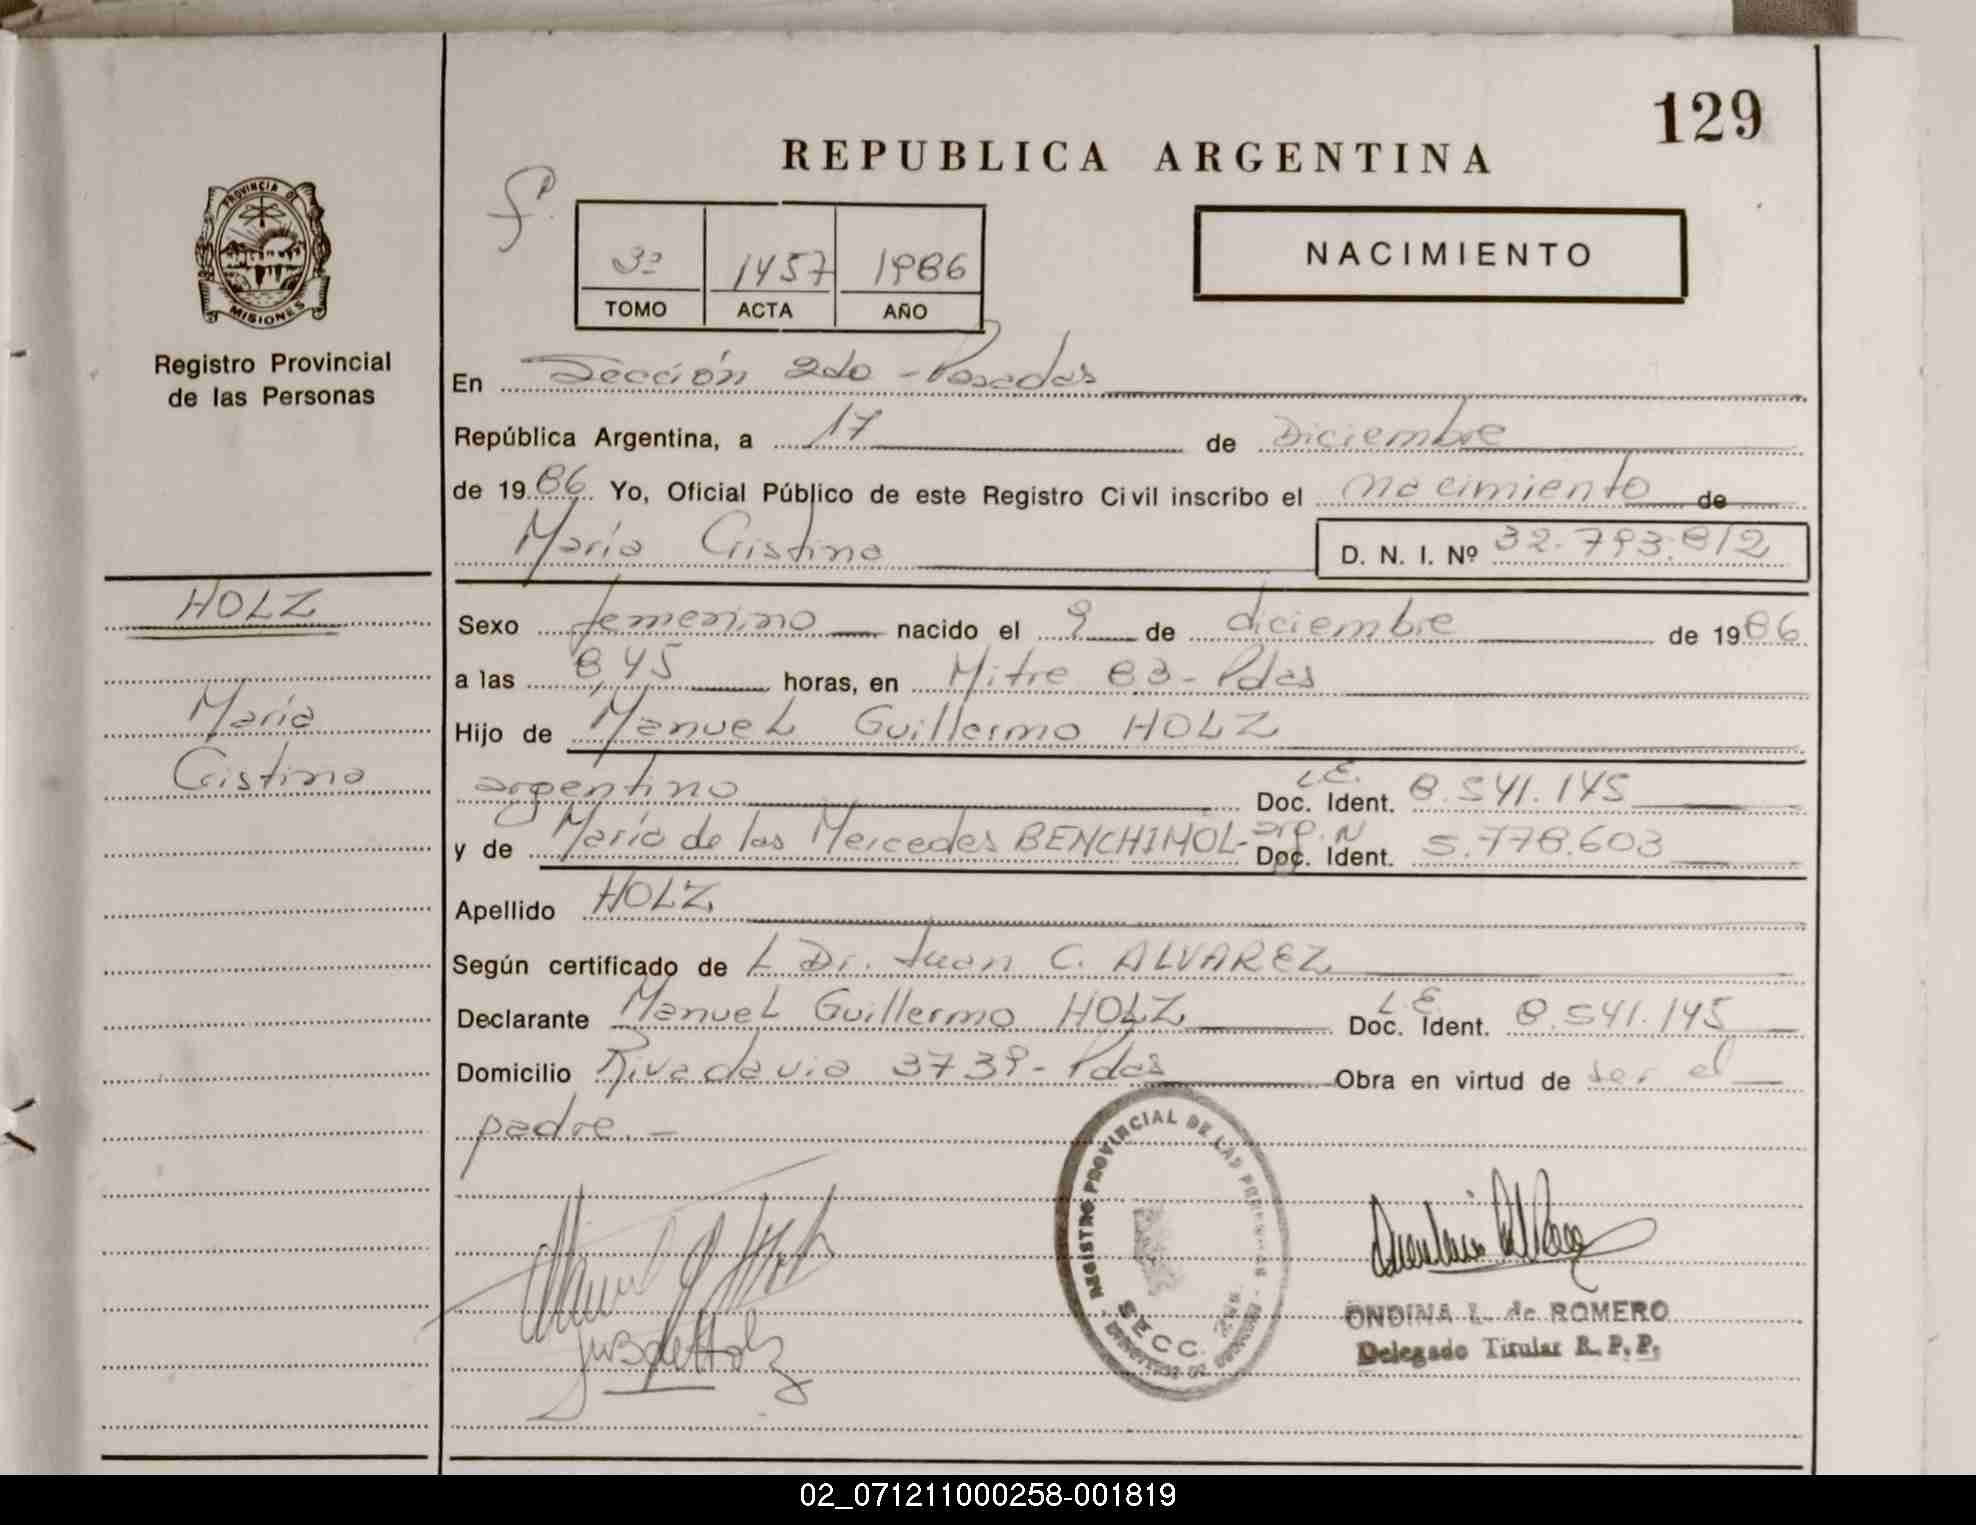 129
REPUBLICA ARGENTINA
PROVINCIA DE
MISIONES
Registro Provincial
de las Personas
3ª 1457 1986
TOMO ACTA AÑO
NACIMIENTO
En Sección 2do - Posadas
República Argentina, a 17 de Diciembre
de 1986. Yo, Oficial Público de este Registro Civil inscribo el nacimiento de
María Cristina D. N. I. Nº 32.793.812
HOLZ
María
Cristina
Sexo femenino nacido el 9 de diciembre de 1986
a las 8,45 horas, en Mitre 83 - Pdas
Hijo de Manuel Guillermo HOLZ
argentino L.E. Doc. Ident. 8.541.145
y de María de las Mercedes BENCHIMOL - arg. N Doc. Ident. 5.778.603
Apellido HOLZ
Según certificado de L Dr. Juan C. ALVAREZ
Declarante Manuel Guillermo HOLZ L.E. Doc. Ident. 8.541.145
Domicilio Rivadavia 3739 - Pdas Obra en virtud de ser el
padre. -
REGISTRO PROVINCIAL DE LAS PERSONAS
SECC. 2da
ONDINA L. de ROMERO
Delegado Titular R. P. P.
02_071211000258-001819